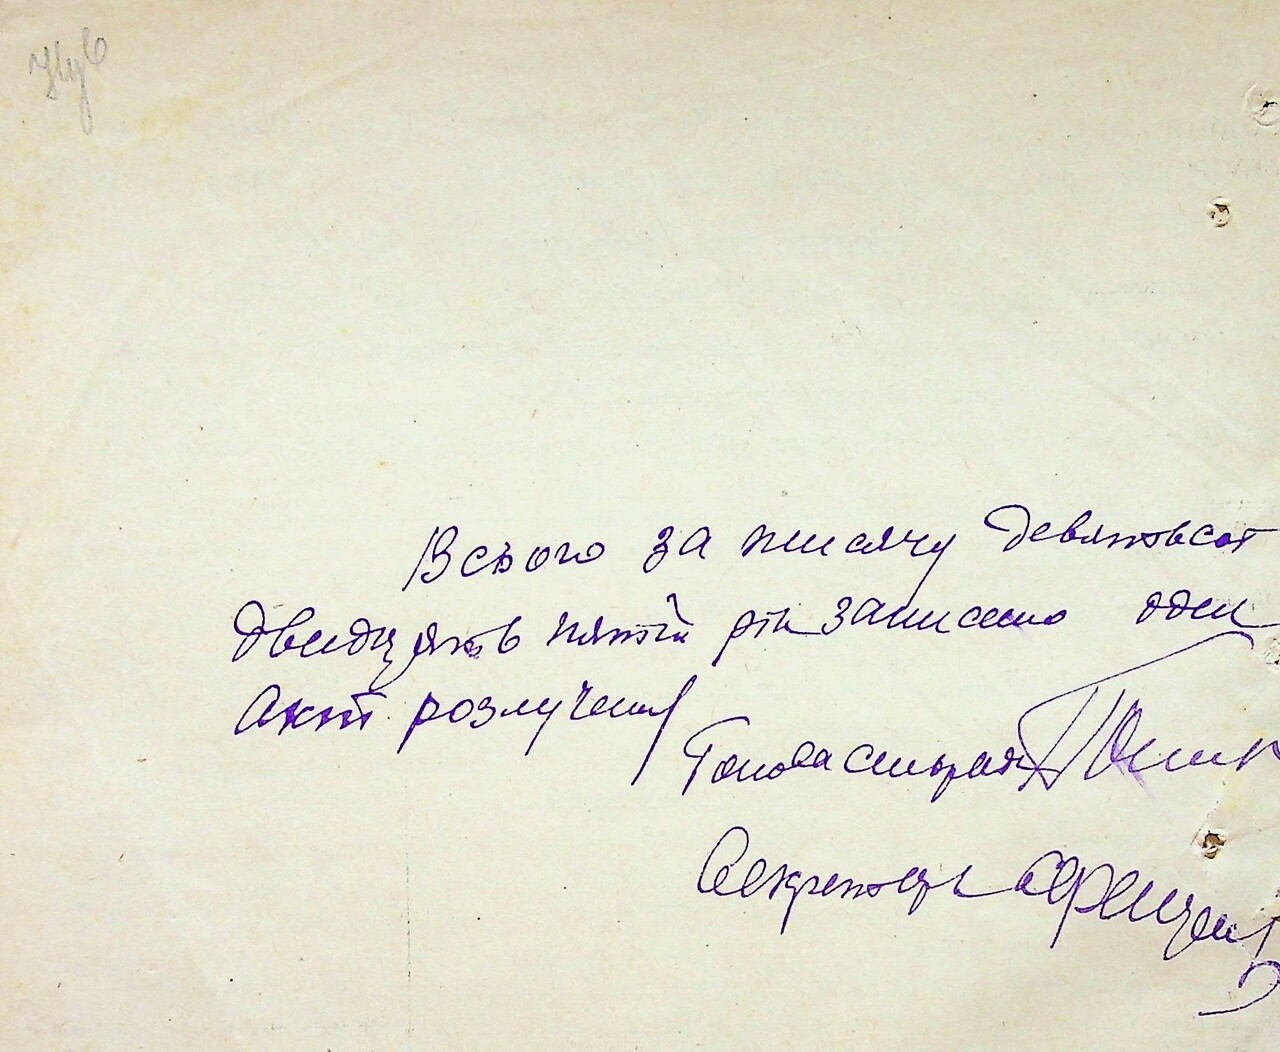 Всього за тисячу девятьсот
двадцять пятий рік записано один
акт розлучення
Голова сільради
Секретарь